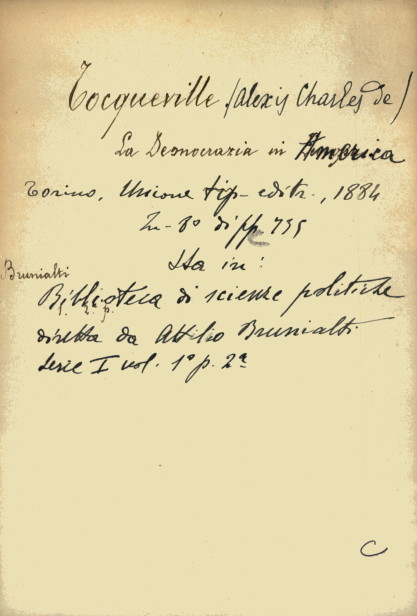 Tocqueville (Alexis Charles de)
La Democrazia in America
Torino, Unione tip-editr., 1884
In-8° di pp 795
Sta in:
Brunialti
Biblioteca di scienze politiche
diretta da Attilio Brunialti
Serie I vol. 1° p. 2ª
C